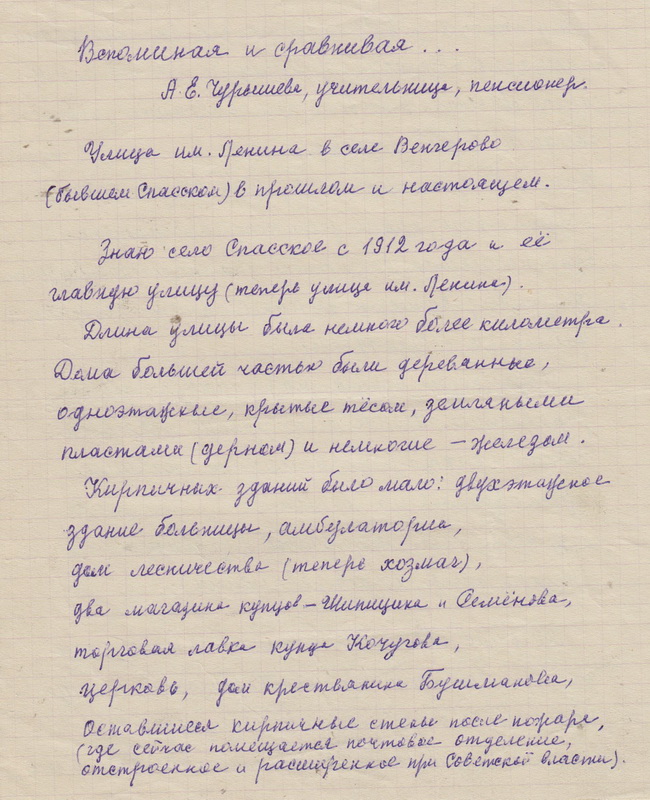 Вспоминая и сравнивая...
А.Е. Чурышева, учительница, пенсионер.
Улица им. Ленина в селе Венгерово
(бывшем Спасском) в прошлом и настоящем.
Знаю село Спасское с 1912 года и её
главную улицу (теперь улица им. Ленина).
Длина улицы была немного более километра.
Дома большей частью были деревянные,
одноэтажные, крытые тёсом, земляными
пластами (дерном) и немногие – железом.
Кирпичных зданий было мало: двухэтажное
здание больницы, амбулатория,
дом лесничества (теперь хозмаг),
два магазина купцов – Шипицина и Семёнова,
торговая лавка купца Кочугова,
церковь, дом крестьянина Бушманова,
оставшиеся кирпичные стены после пожара,
(где сейчас помещается почтовое отделение,
отстроенное и расширенное при Советской власти).